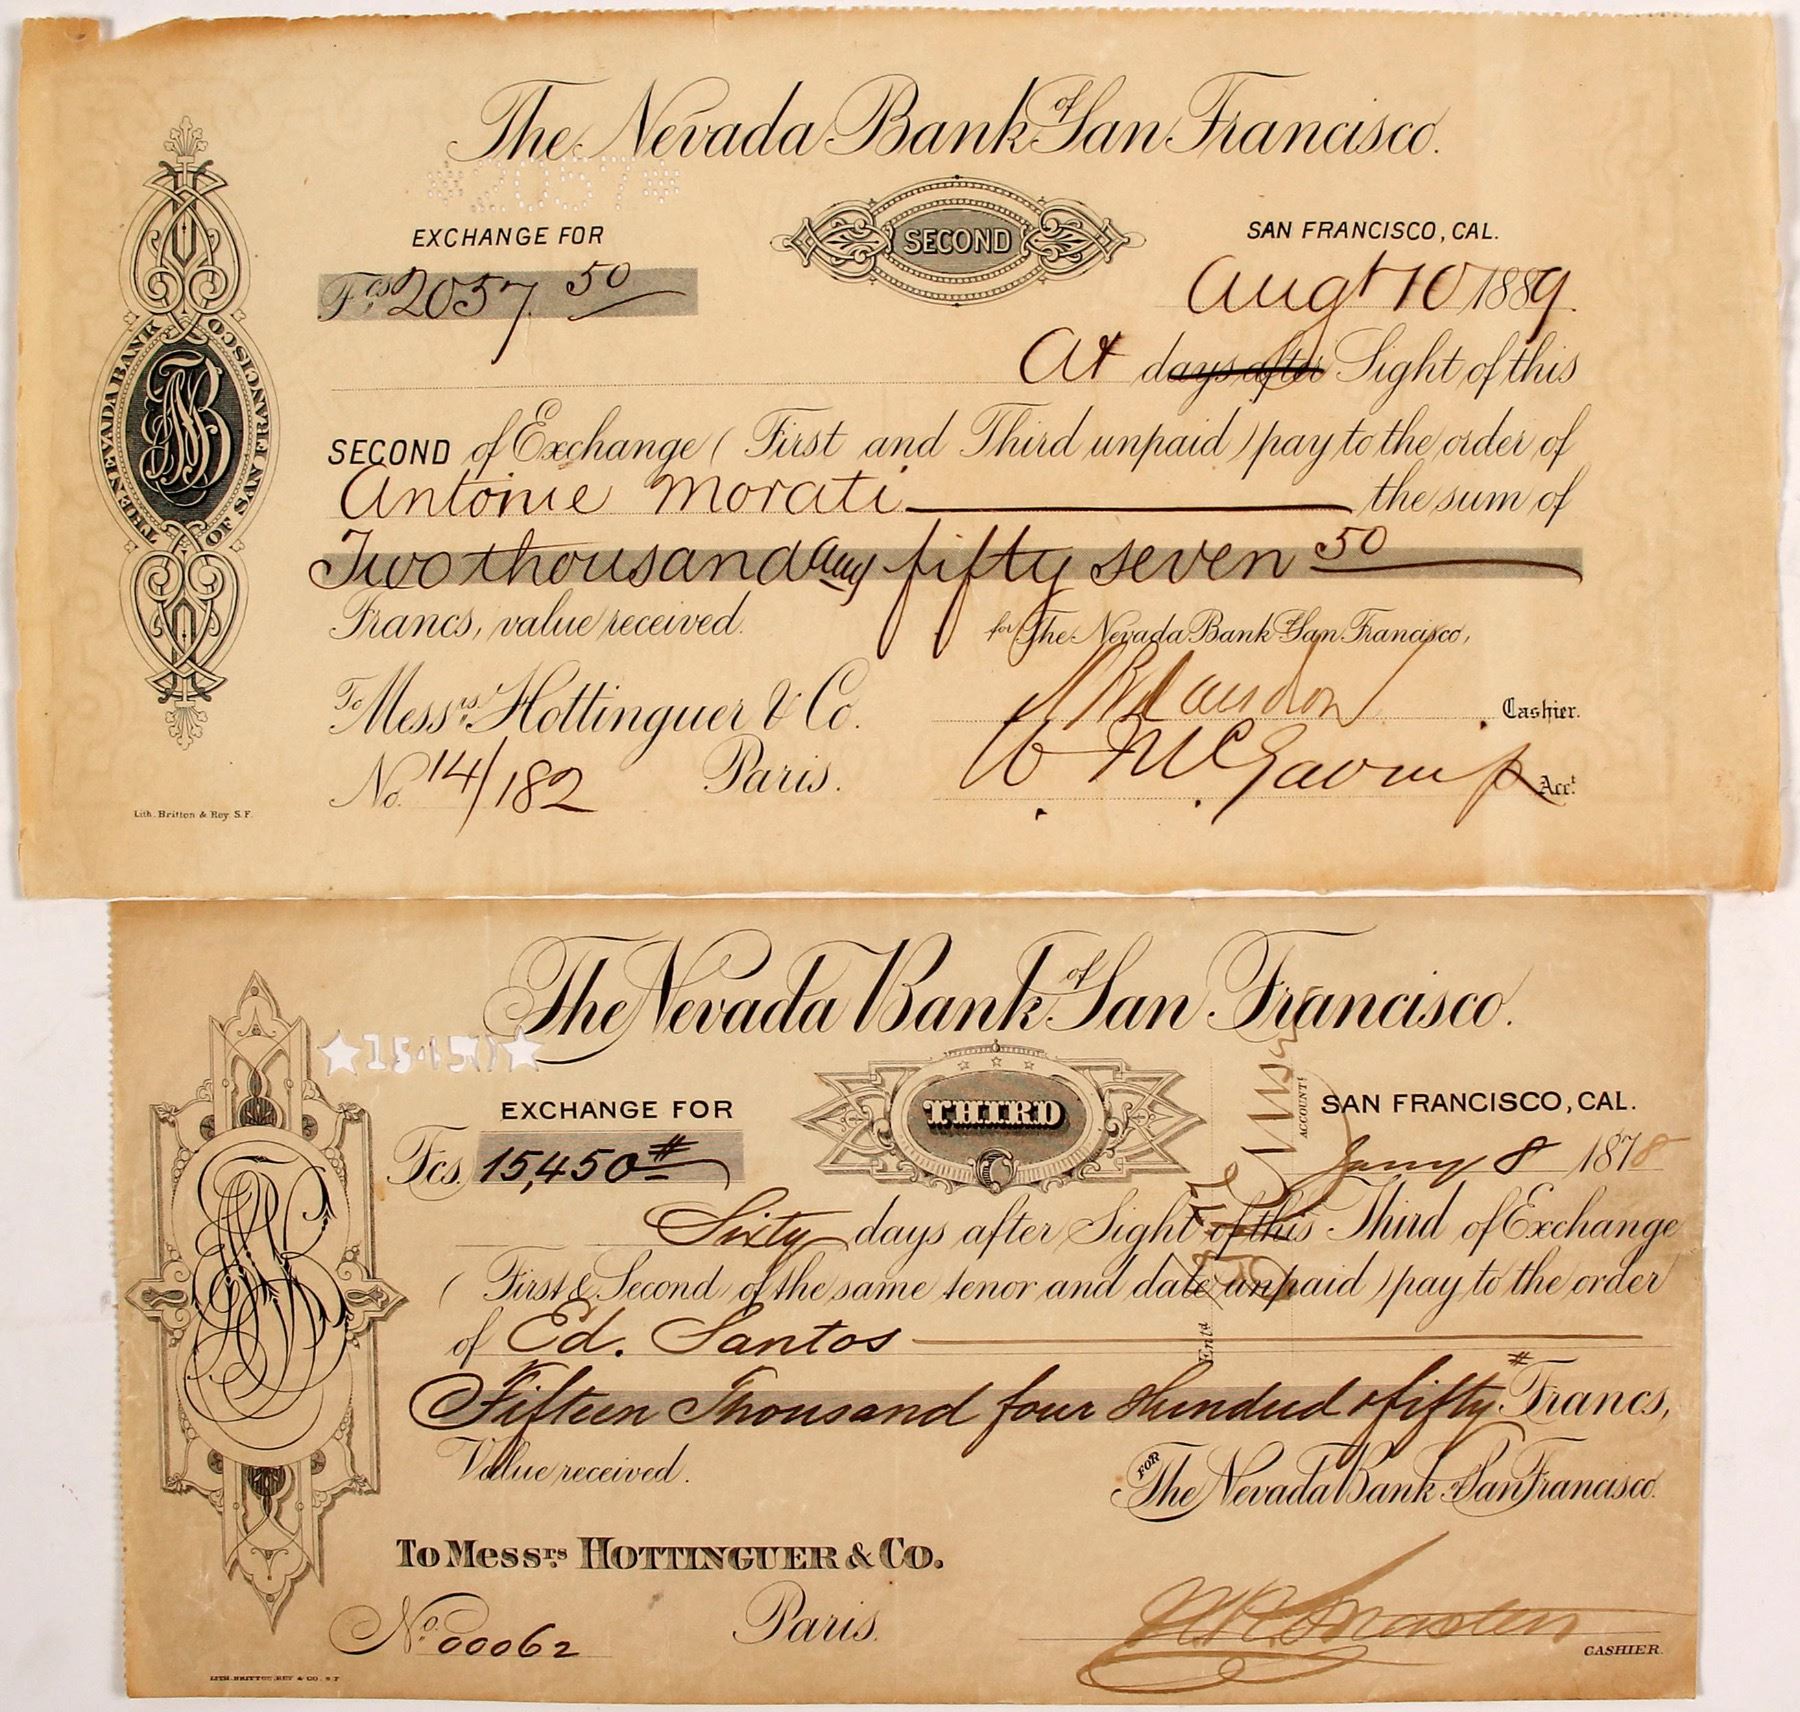 The Nevada Bank of San Francisco.
*2057*
EXCHANGE FOR
SECOND
SAN FRANCISCO, CAL.
Fcs 2057.50
Augt 10 1889.
At days after Sight of this
SECOND of Exchange (First and Third unpaid) pay to the order of
Antonie Morati the sum of
Two thousand and fifty seven 50
Francs, value received.
for The Nevada Bank of San Francisco,
To Messrs. Hottinguer & Co.
Cashier.
No. 14/182 Paris.
Acct.
THE NEVADA BANK
OF SAN FRANCISCO
NB
Lith. Britton & Rey S.F.
The Nevada Bank of San Francisco.
★15450★
EXCHANGE FOR
THIRD
SAN FRANCISCO, CAL.
Fcs. 15,450#
Jany 8 1878
ACCOUNT!
Entd
Sixty days after Sight of this Third of Exchange
(First & Second of the same tenor and date unpaid) pay to the order
of Ed. Santos
Fifteen Thousand four Hundred & fifty # Francs,
Value received.
FOR The Nevada Bank of San Francisco.
To Messrs. HOTTINGUER & Co.
No. 00062 Paris.
CASHIER.
LITH. BRITTON, REY & CO. S.F.